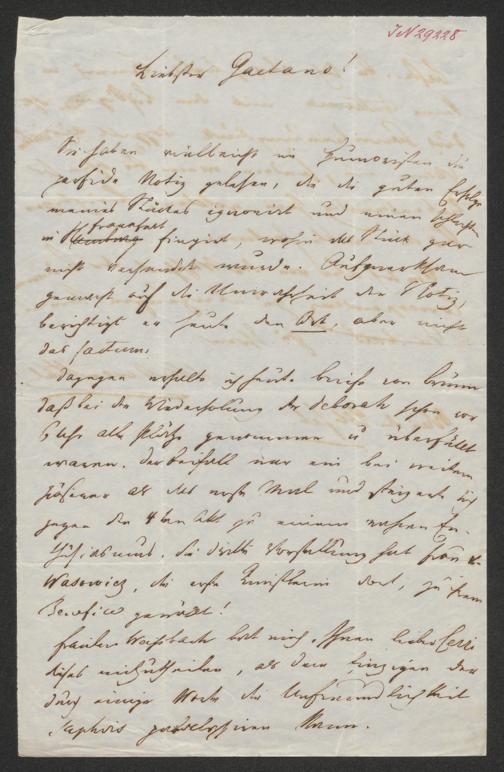 JN 29228
Liebster Gaetano!
Sie haben vielleicht im Humoristen die
perfide Notiz gelesen, die die guten Erfolge
meines Stückes ignorirt und einen schlechten
in Hamburg Frankfurt fingirt, wohin das Stück gar
nicht versendet wurde. Aufmerksam
gemacht auf die Unwahrheit der Notiz,
berichtigt er heute den Ort, aber nicht
das factum.
Dagegen erhielt ich heute Briefe von Brünn
daß bei der Wiederholung der Deborah schon vor
6 Uhr alle Plätze genommen u überfüllt
waren. Der Beifall war ein bei weitem
größerer als das erste Mal und steigerte sich
gegen den 4ten Akt zu einem wahren En-
thusiasmus. Die dritte Vorstellung hat Frau v
Wasowicz, die erste Künstlerin dort, zu ihrem
Benefice gewählt!
Fräulein Weißbach bat mich, Ihnen lieber Cerri
dieses mitzutheilen, als dem Einzigen der
durch einige Worte die Unfreundlichkeit
Saphirs paralysiren kann.